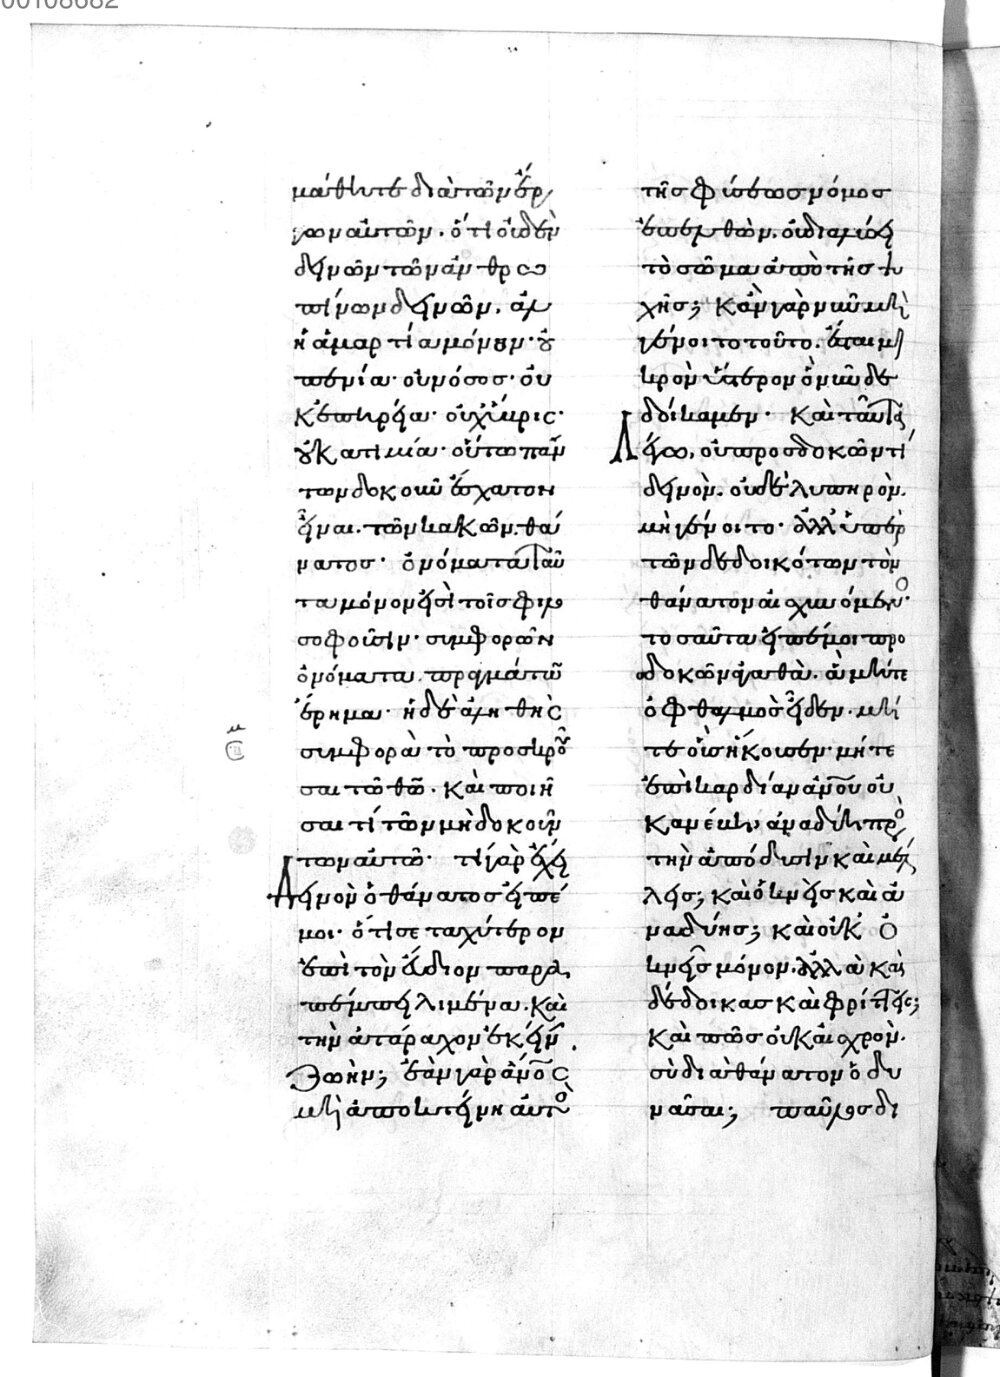 00108682
μάθητε διὰ τῶν ἔρ
γων αὐτῶν. ὅτι οὐδὲν
δεινὸν τῶν ἀνθρω
πίνων δεινῶν. ἀλλ
ἡ ἁμαρτία μόνον· οὐ
πενία· οὐ νόσος· οὐ
κ ἐπήρεια· οὐχ ὕβρις·
οὐκ ἀτιμία· οὐ τὸ πάν
των δοκοῦν ἔσχατον
εἶναι τῶν κακῶν, θά
νατος· ὀνόματα ταῦ
τα μόνον ἐστὶ τοῖς φιλο
σοφοῦσιν· συμφορῶν
ὀνόματα πραγμάτων
ἔρημα· ἡ δὲ ἀληθὴς
συμφορὰ τὸ προσκροῦ
σαι τῶ θῶ. καὶ ποιῆ
σαι τὶ τῶν μὴ δοκούν
των αὐτῶ· τί γὰρ ἔχει
δεινὸν ὁ θάνατος εἰπέ
μοι· ὅτι σε ταχύτερον
ἐπὶ τὸν εὔδιον παρα
πέμπει λιμένα. καὶ
τὴν ἀτάραχον ἐκείνην
ζωήν; ἐὰν γὰρ ἀνος
μὴ ἀποκτείνη αὐτὸς
τῆς φύσεως νόμος
ἐπελθὼν, οὐ διαλύσει
τὸ σῶμα ἀπὸ τῆς ψυ
χῆς; κἂν γὰρ νῦν μὴ
γένοιτο τοῦτο. ἔσται μι
κρὸν ὕστερον ὃ νῦν δε
δοίκαμεν· καὶ ταῦτα
λέγω, οὐ προσδοκῶν τὶ
δεινὸν. οὐδὲ λυπηρὸν.
μὴ γένοιτο· ἀλλ' ὑπὲρ
τῶν δεδοικότων τὸν
θάνατον αἰσχυνόμενος·
τοσαῦτα εἰπέ μοι προσ
δοκῶν ἀγαθὰ. ἃ μήτε
ὀφθαλμὸς εἶδεν. μή
τε οὖς ἤκουσεν· μήτε
ἐπὶ καρδίαν ἀνου οὐ
κ ἀνέβη, ἀναδύη πρὸς
τὴν ἀπόλαυσιν καὶ μέλ
λεις; καὶ ὀκνεῖς καὶ ἀ
ναδύης; καὶ οὐκ ὀ
κνεῖς μόνον. ἀλλὰ καὶ
δέδοικας καὶ φρίττεις;
καὶ πῶς οὐκ αἰσχρὸν.
σὺ διὰ θάνατον ὀδυ
νᾶσαι; παῦλος δὲ